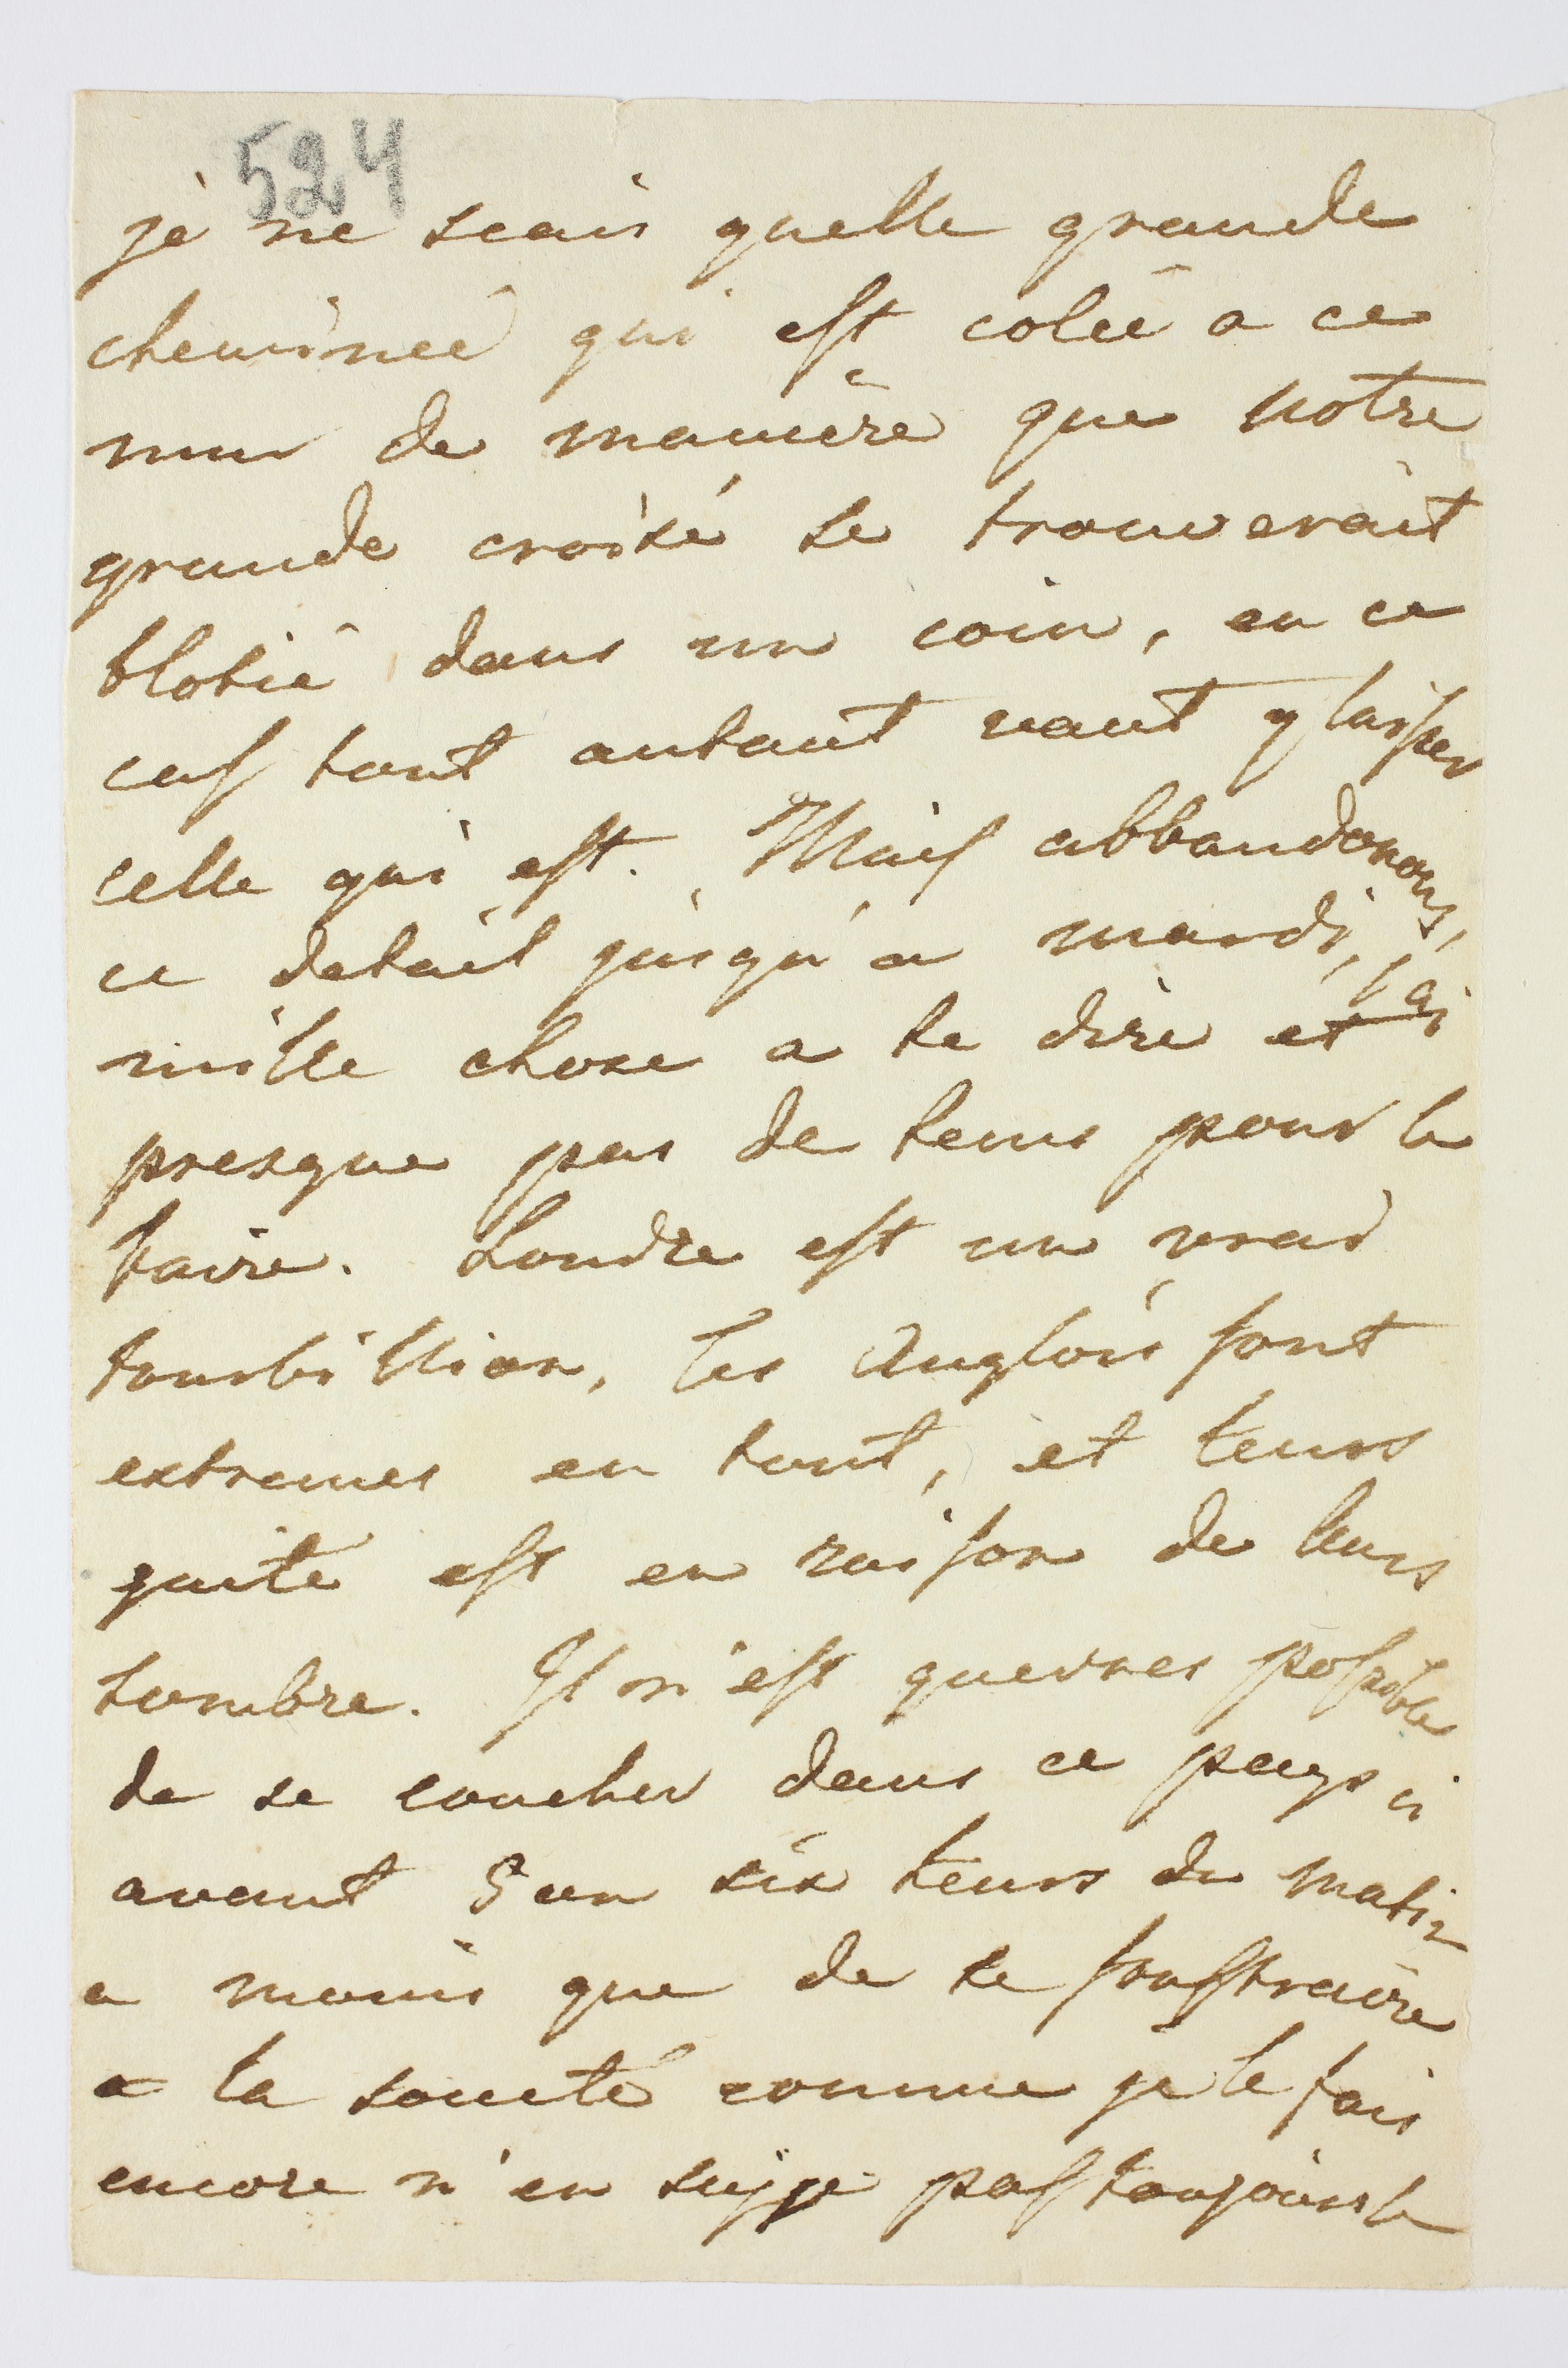 524
je ne scais quelle grande
cheminée qui est colée a ce
mur de manière que notre
grande croisé se trouverait
blotie dans un coin, en ce
cas tout autant vaut y laisser
celle qui est. Mais abbandonons,
ce detail jusqu'a mardi, j'ai
mille chose a te dire et
presque pas de tems pour le
faire. Londre est un vrai
tourbillion, les Anglois sont
extremes en tout, et leurs
gaité est en raison de leurs
sombre. Il n'est gueres possible
de se coucher dans ce pays ci
avant 5 ou six heurs du matin
a moins que de se soustraire
a la société comme je le fais
encore n'en suije pas toujours le